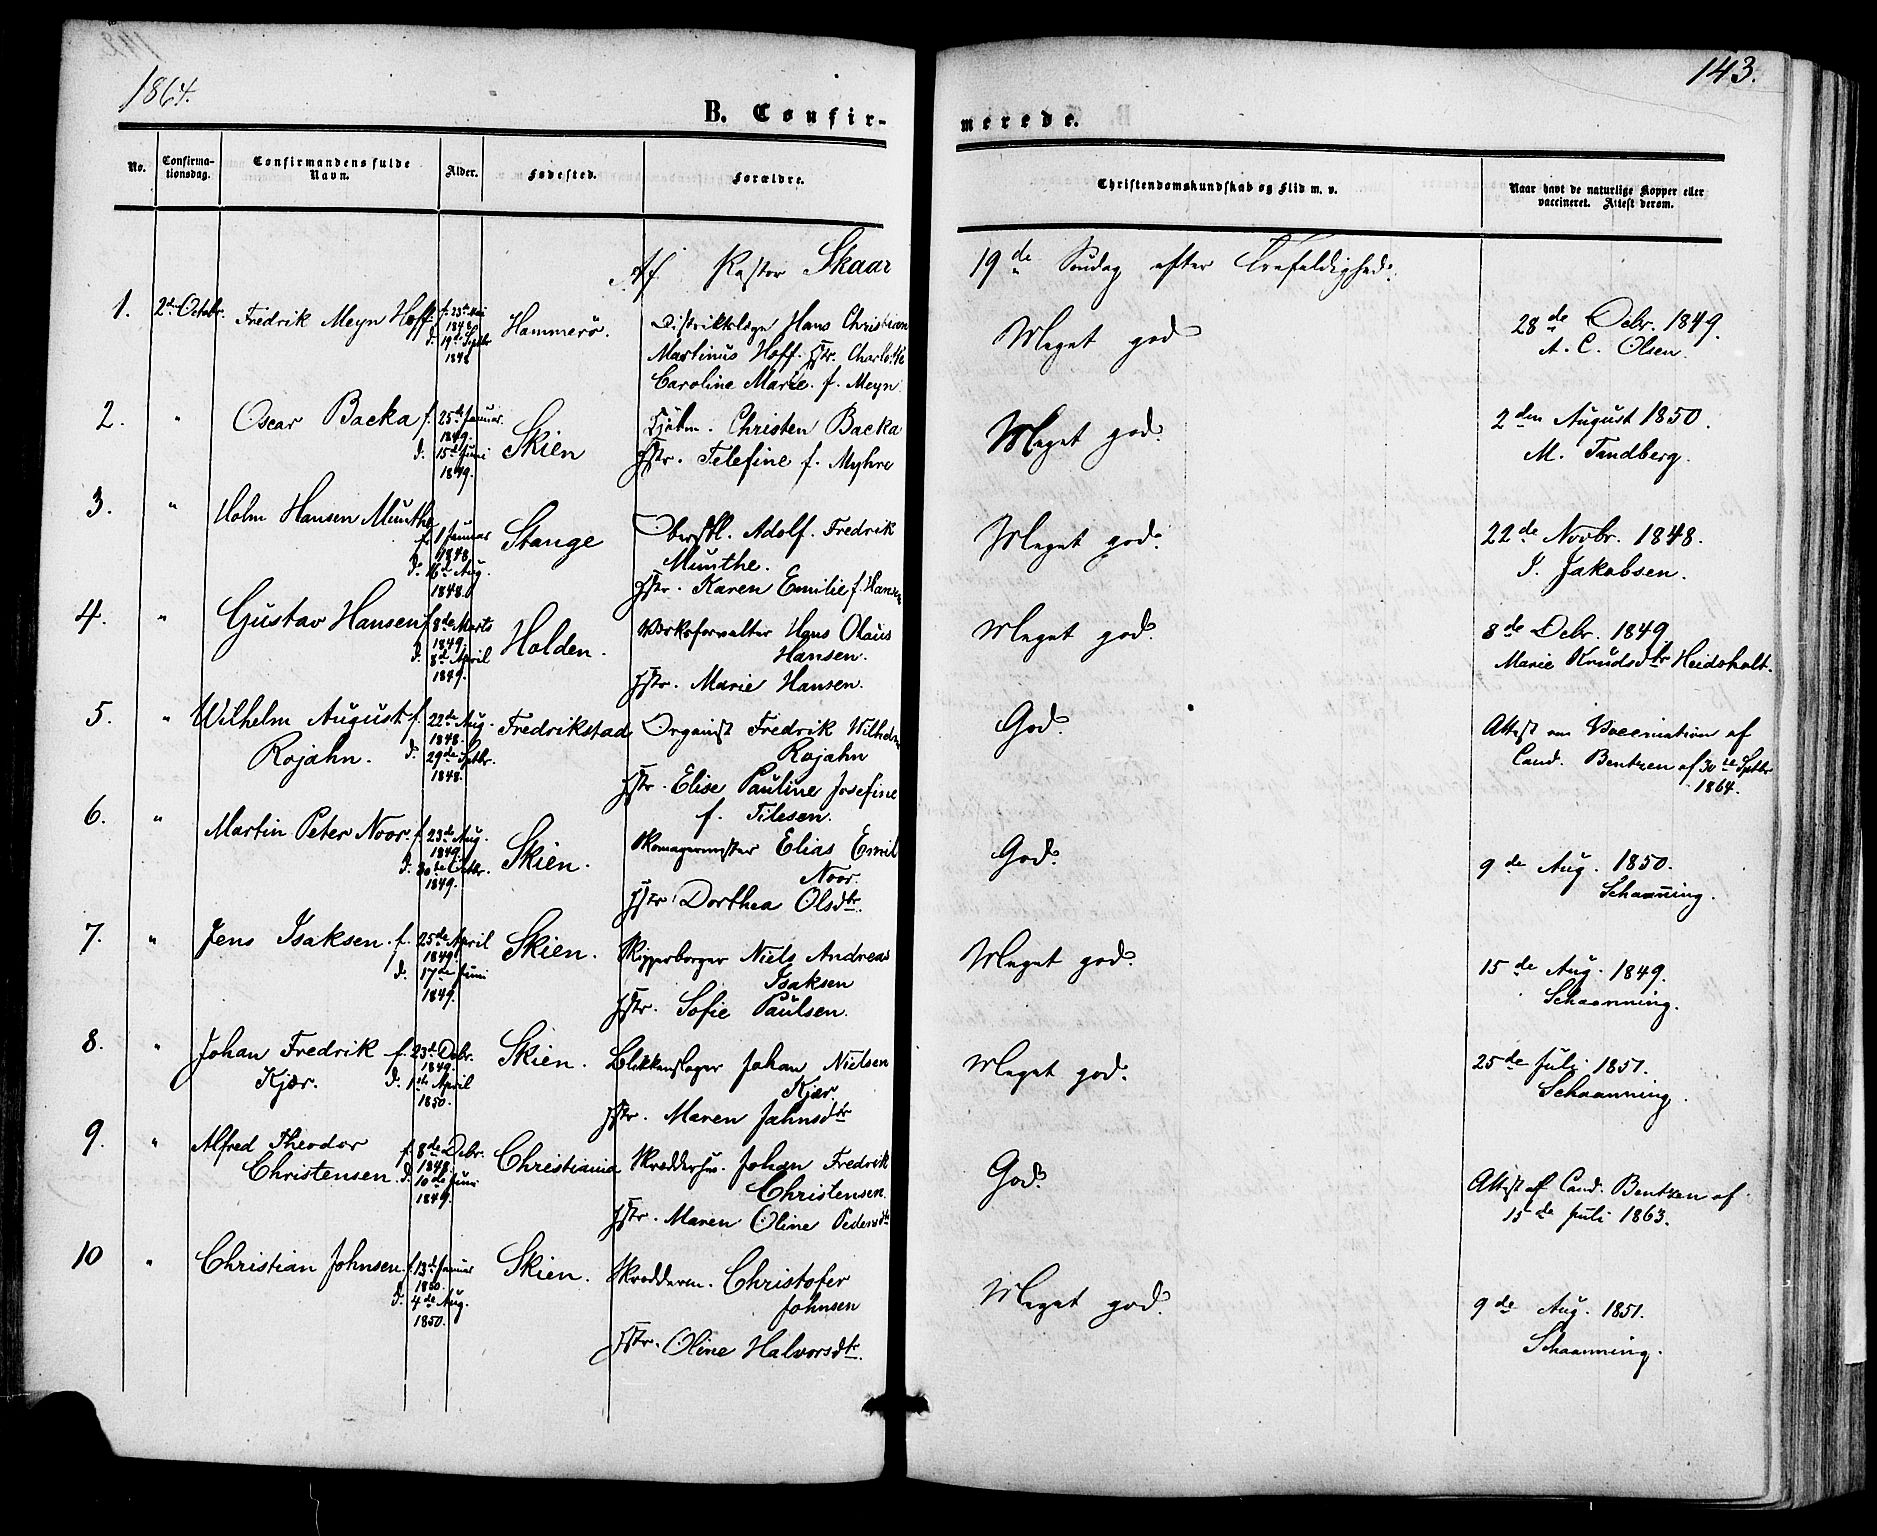 1864.
143.
B. Confir-
merede.
No.
Confirma-
tionsdag.
Confirmandens fulde
Navn.
Alder.
Fødested.
Forældre.
Christendomskundskab og Flid m. v.
Naar havt de naturlige Kopper eller
vaccineret. Attest derom.
Af Pastor Skaar
19de Søndag efter Trefoldighed.
1. 2den Octobr. Fredrik Meyn Hoff f. 23de Mai
1848
d. 19de Septbr
1848
Hammerö.
Distriktslæge Hans Christian
Martinus Hoff. Hstr. Charlotte
Caroline Marie f. Meyn
Meget god
28de Debr. 1849.
A. C. Olsen.
2. " Oscar Backa f. 25de Januar
1849.
d. 15de Juni
1849.
Skien
Kjøbm. Christen Backa
Hstr. Telefine f. Myhre
Meget god.
2den August 1850.
M. Tandberg.
3. " Holm Hansen Munthe
f. 1 Januar
1848.
d. 16de Aug.
1848.
Stange
Oberstl. Adolf Fredrik
Munthe.
Hstr. Karen Emilie f. Hansen
Meget god.
22de Novbr. 1848.
J. Jakobsen.
4. " Gustav Hansen f. 8de Marts
1849.
d. 8de April
1849.
Holden.
Værksforvalter Hans Olaus
Hansen.
Hstr. Marie Hansen.
Meget god.
8de Debr. 1849.
Marie Knudsdtr Heidsholt.
5. " Wilhelm August f. 22de Aug.
1848.
Rojahn. d. 29de Septbr.
1848.
Fredrikstad
Organist Fredrik Wilhelm
Rojahn
Hstr. Elise Pauline Josefine
f. Tilesen.
God.
Attest om Vaccination af
Cand. Bentzen af 30te Septbr
1864.
6. " Martin Peter Noor. f. 23de Aug.
1849.
d. 20de Octbr.
1849.
Skien.
Skomagermester Elias Emil
Noor.
Hstr. Dorthea Olsdtr.
God.
9de Aug. 1850.
Schaanning.
7. " Jens Isaksen. f. 25de April
1849.
d. 17de Juni
1849.
Skien.
Skipperborger Niels Andreas
Isaksen
Hstr. Sofie Paulsen.
Meget god.
15de Aug. 1849.
Schaanning.
8. " Johan Fredrik f. 23de Debr.
1849.
Kjær. d. 1ste April
1850.
Skien.
Blikkenslager Johan Nielsen
Kjær.
Hstr. Maren Jahnsdtr
Meget god.
25de Juli 1851.
Schaanning.
9. " Alfred Theodor f. 8de Debr.
1848.
Christensen. d. 10de Juni
1849.
Christiania
Johan Fredrik
Christensen.
Hstr. Maren Oline Pedersdtr
God.
Attest af Cand. Bentzen af
15de Juli 1863.
10 " Christian Johnsen. f. 13de Januar
1850.
d. 4de Aug.
1850.
Skien.
Skrædderm. Christofer
Johnsen
Hstr. Oline Halvorsdtr.
Meget god.
9de Aug. 1851.
Schaanning.